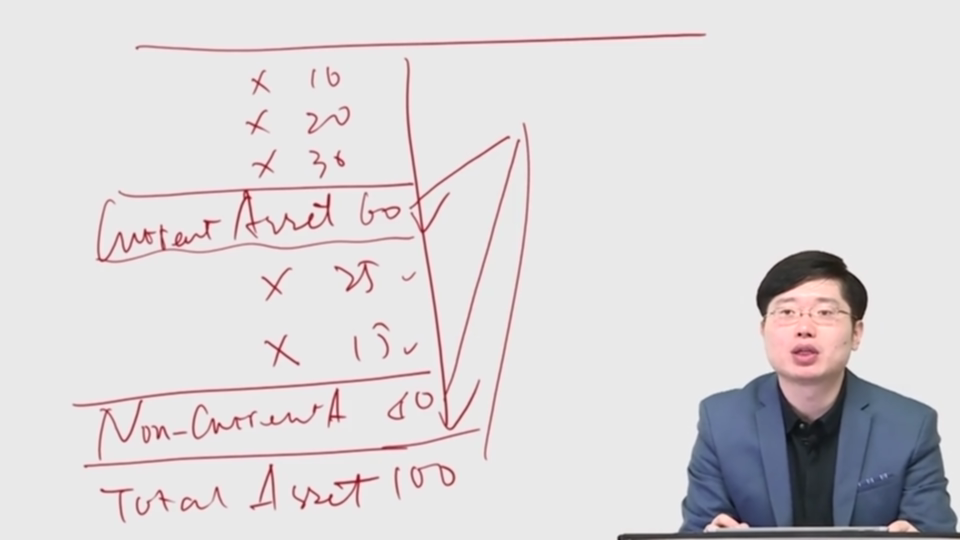 X 10
X 20
X 30
Current Asset 60
X 25
X 15
Non-Current A 40
Total Asset 100